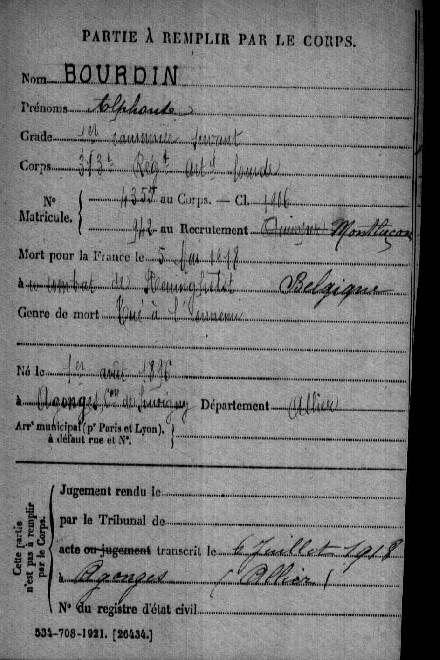 PARTIE À REMPLIR PAR LE CORPS.
Nom BOURDIN
Prénoms Alphonse
Grade 1er canonnier servant
Corps 313e Régt Artie lourde
N° Matricule. { 4355 au Corps. — Cl. 1916
942 au Recrutement Montluçon
Mort pour la France le 5 Mai 1918
à combat de Reninghelst Belgique
Genre de mort Tué à l'ennemi
Né le 1er août 1896
à Agonges Con de Souvigny Département Allier
Arrt municipal (pr Paris et Lyon), à défaut rue et N°. {
Cette partie n'est pas à remplir par le Corps.
Jugement rendu le
par le Tribunal de
acte ou jugement transcrit le 6 Juillet 1918
à Agonges (Allier)
N° du registre d'état civil
534-708-1921. [26434.]